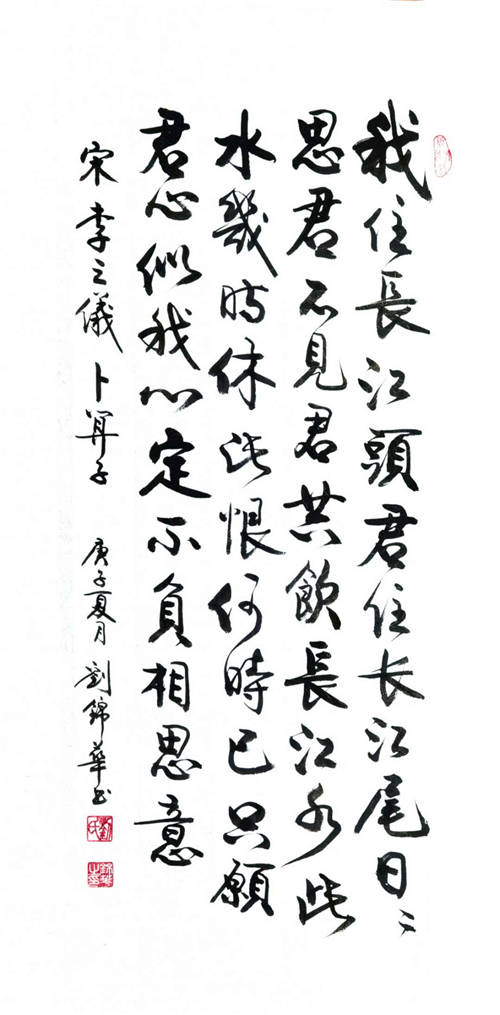 我住長江頭君住长江尾日々
思君不見君共飲長江水此
水幾时休此恨何時已只願
君心似我心定不負相思意
宋李之儀卜算子 庚子夏月劉錦華书
劉氏